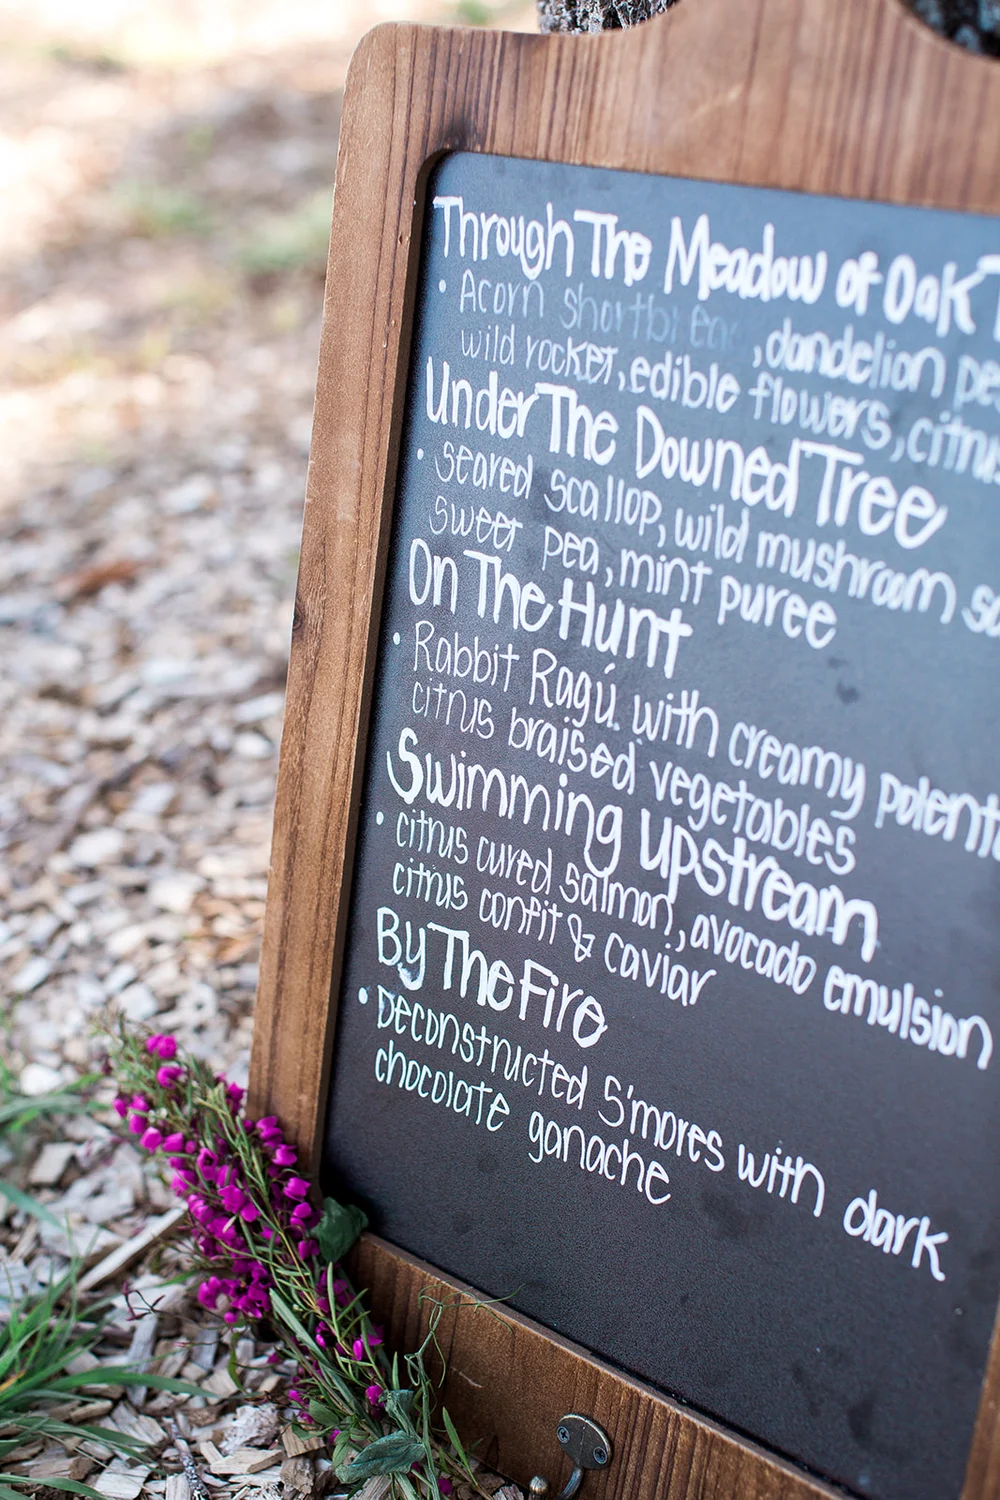 Through The Meadow of Oak
• Acorn shortbread, dandelion
wild rocket, edible flowers,
Under The Downed Tree
• seared scallop, wild mushroom
sweet pea, mint puree
On The Hunt
• Rabbit Ragú with creamy
citrus braised vegetables
Swimming Upstream
• citrus cured salmon, avocado emulsion
citrus confit & caviar
By The Fire
• Deconstructed S'mores with dark
chocolate ganache